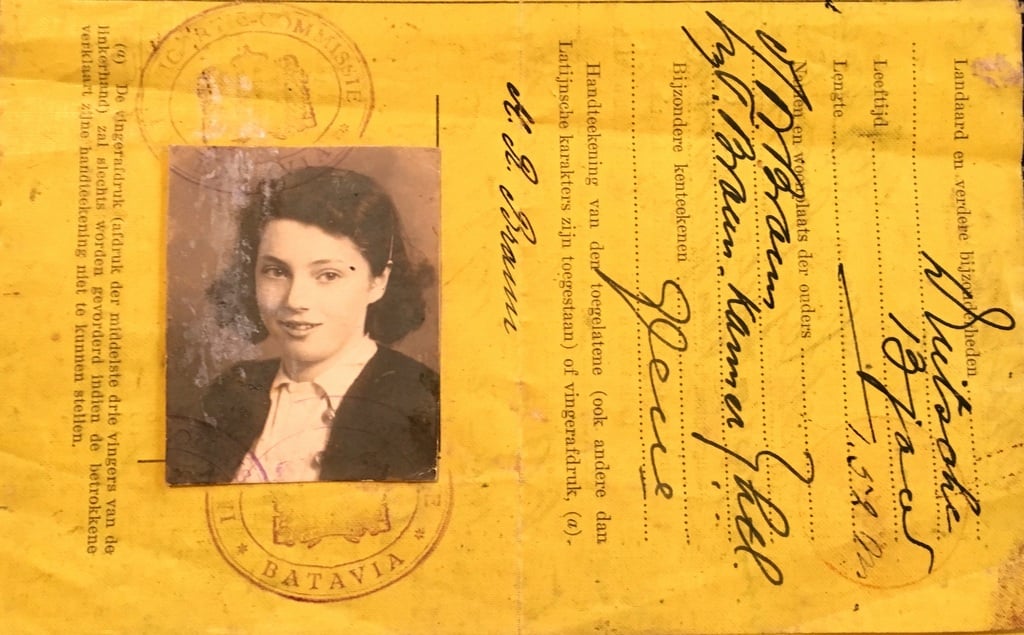 Landaard en verdere bijzonderheden
Duitsche
Leeftijd 13 jaar
Lengte 1.52
Namen en woonplaats der ouders
Braun
Braun-Kamer
Bijzondere kenteekenen
Geene
Handteekening van den toegelatene (ook andere dan
Latijnsche karakters zijn toegestaan) of vingerafdruk, (a).
Braun
IGRATIE-COMMISSIE
BATAVIA
(a) De vingerafdruk (afdruk der middelste drie vingers van de
linkerhand) zal slechts worden gevorderd indien de betrokkene
verklaart zijne handteekening niet te kunnen stellen.